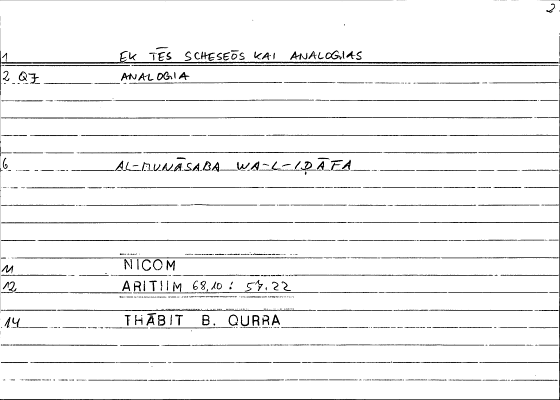 2
1 EK TĒS SCHESEŌS KAI ANALOGIAS
2 Q7 ANALOGIA
6 AL-MUNĀSABA WA-L-IḌĀFA
11 NICOM
12 ARITIIM 68,10 : 57.22
14 THĀBIT B. QURRA